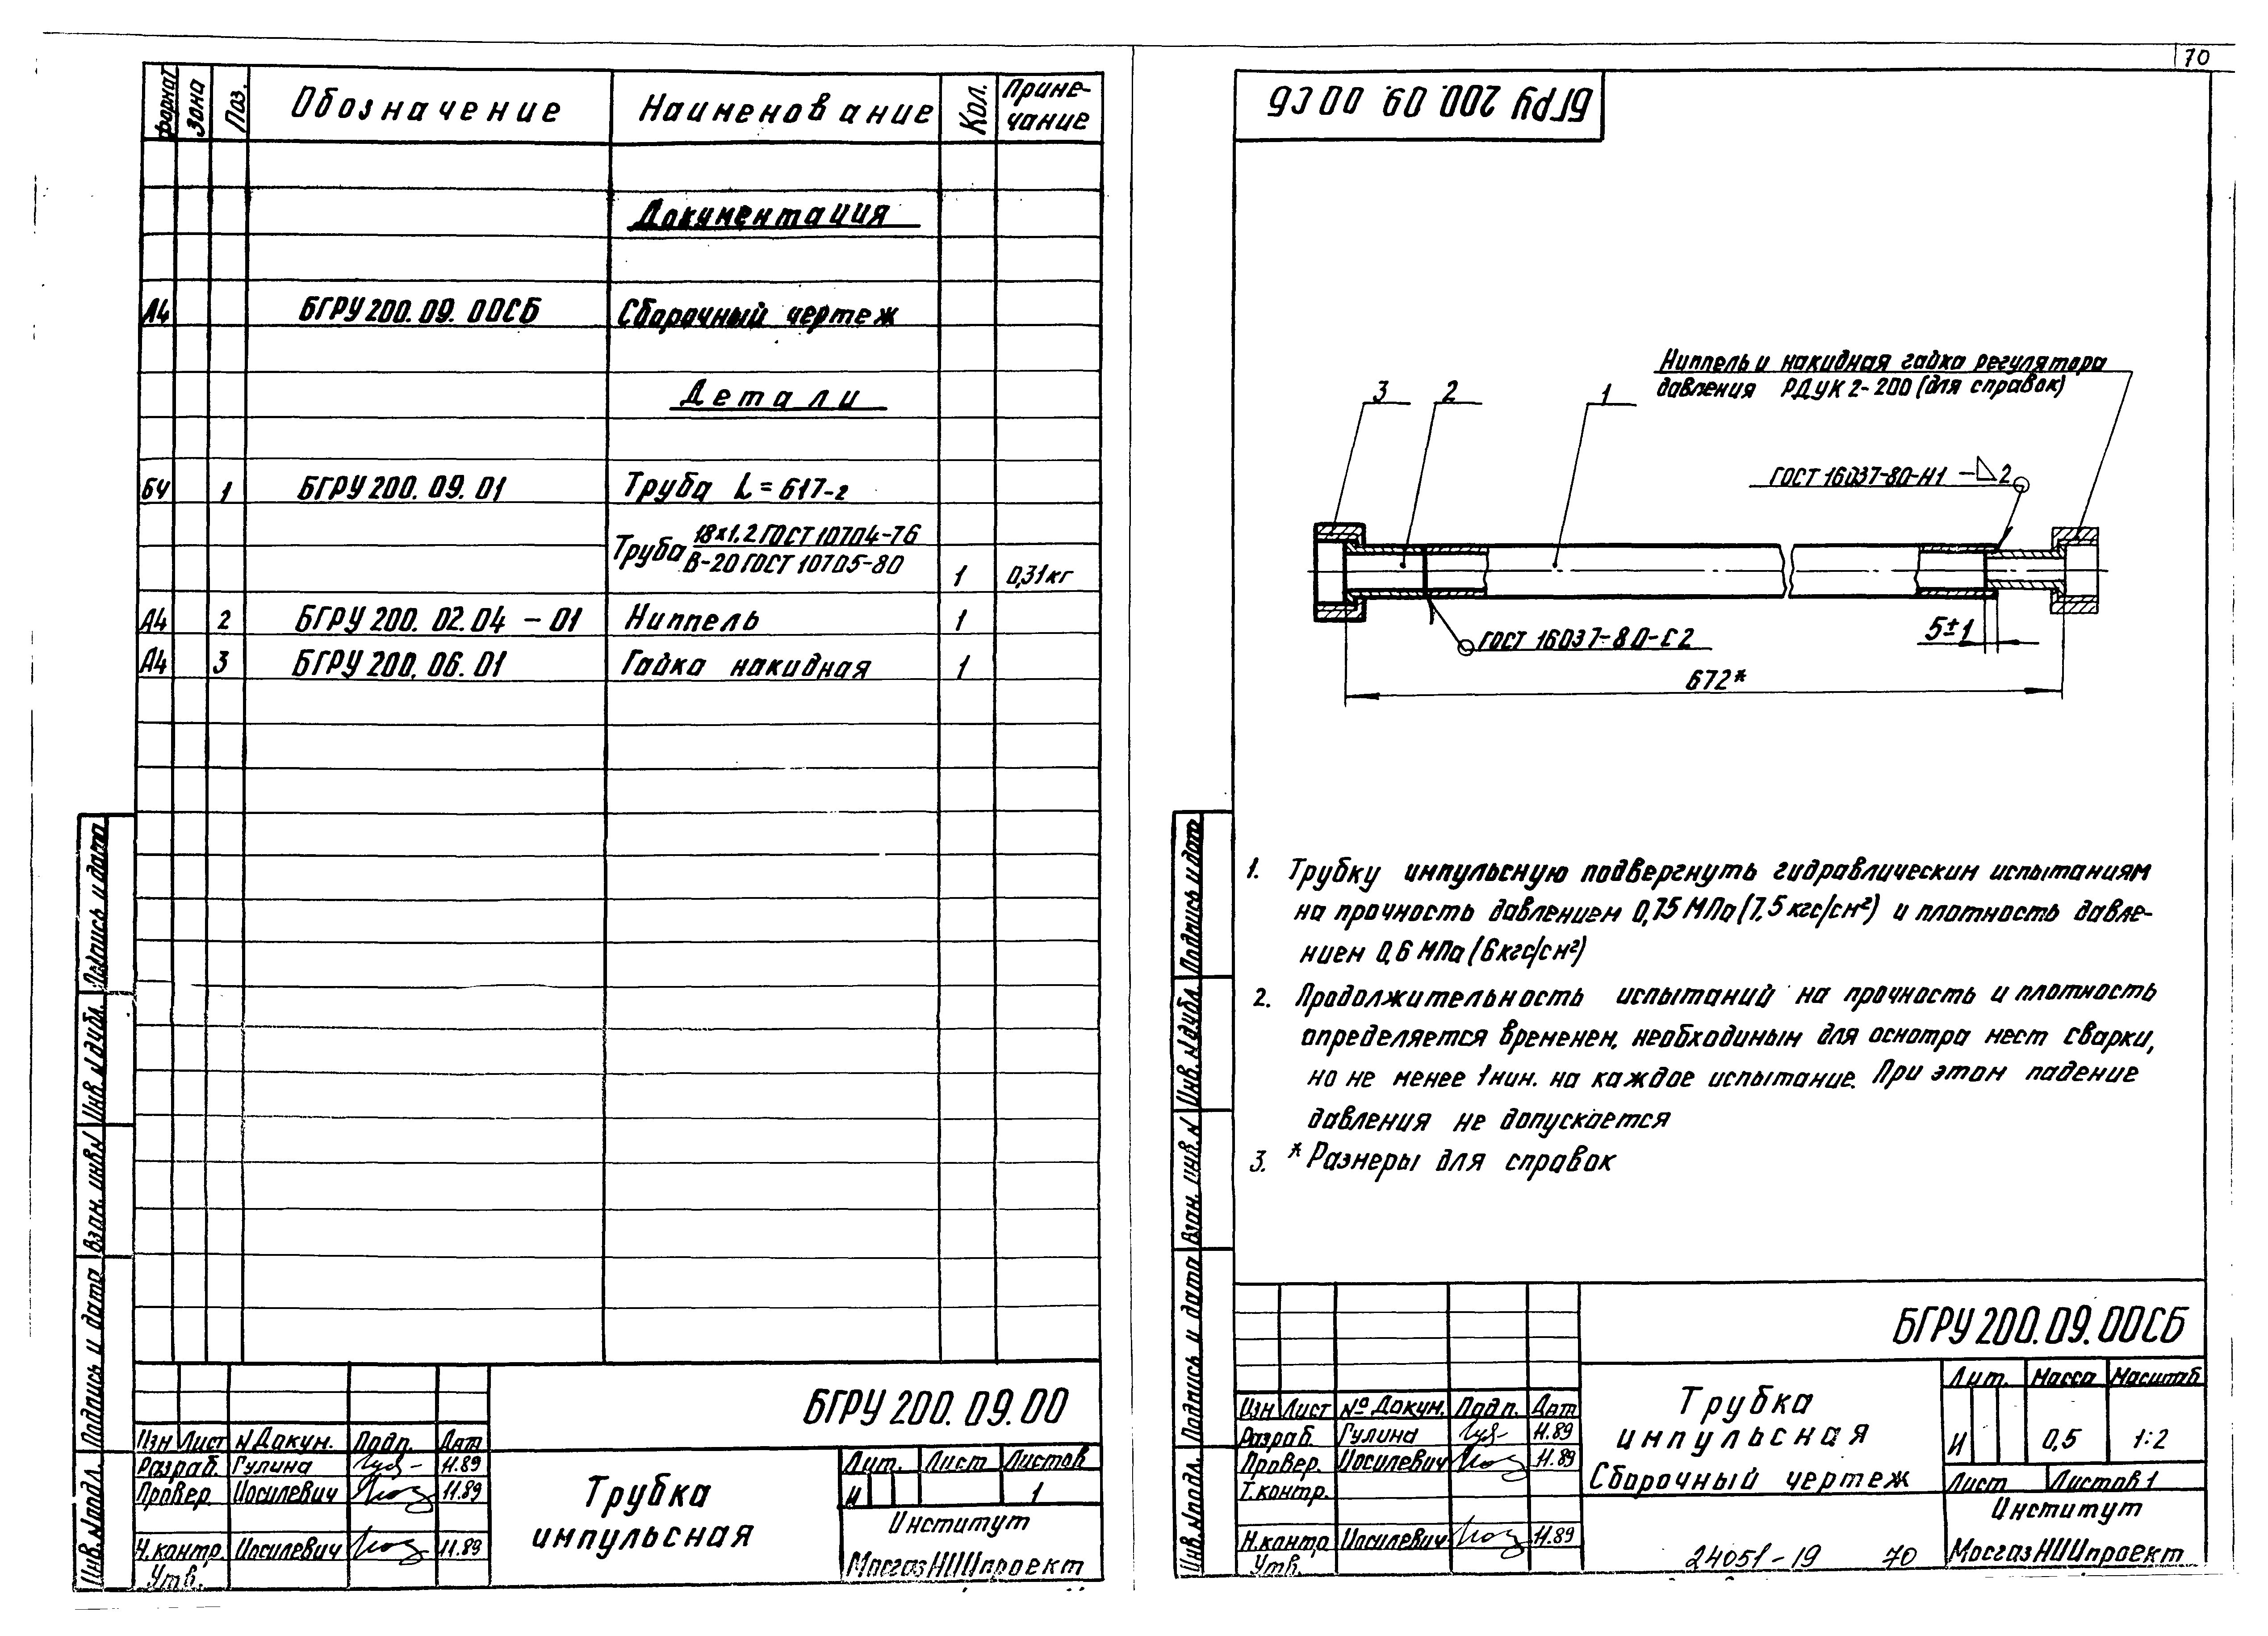 70
формат Зона Поз. Обозначение Наименование Кол. Приме-
чание
Документация
А4 БГРУ 200.09.00СБ Сборочный чертеж
Детали
БЧ 1 БГРУ 200.09.01 Труба L=617-2
Труба 18х1,2 ГОСТ 10704-76
В-20 ГОСТ 10705-80 1 0,31кг
А4 2 БГРУ 200.02.04-01 Ниппель 1
А4 3 БГРУ 200.06.01 Гайка накидная 1
Подпись и дата
Инв. N дубл.
Взам. инв. N
Подпись и дата
Инв. N подл.
БГРУ 200.09.00
Изм Лист N Докум. Подп. Дат
Разраб. Гулина 11.89
Провер. Иосилевич 11.89
Н.контр. Иосилевич 11.89
Утв.
Трубка
импульсная
Лит. Лист Листов
И 1
Институт
МосгазНИИпроект
БГРУ 200.09.00СБ
Ниппель и накидная гайка регулятора
давления РДУК 2-200 (для справок)
3 2 1
ГОСТ 16037-80-Н1 - 2
ГОСТ 16037-80-С2
5±1
672*
1. Трубку импульсную подвергнуть гидравлическим испытаниям
на прочность давлением 0,75 МПа (7,5 кгс/см²) и плотность давле-
нием 0,6 МПа (6кгс/см²)
2. Продолжительность испытаний на прочность и плотность
определяется временем, необходимым для осмотра мест сварки,
но не менее 1мин. на каждое испытание. При этом падение
давления не допускается
3. * Размеры для справок
Подпись и дат
Инв. N дубл.
Взам. инв. N
Подпись и дата
Инв. N подл.
БГРУ 200.09.00СБ
Изм Лист № Докум. Подп. Дат
Разраб. Гулина 11.89
Провер. Иосилевич 11.89
Т.контр.
Н.контр Иосилевич 11.89
Утв.
Трубка
импульсная
Сборочный чертеж
Лит. Масса Масштаб
И 0,5 1:2
Лист Листов 1
Институт
МосгазНИИпроект
24051-19 70